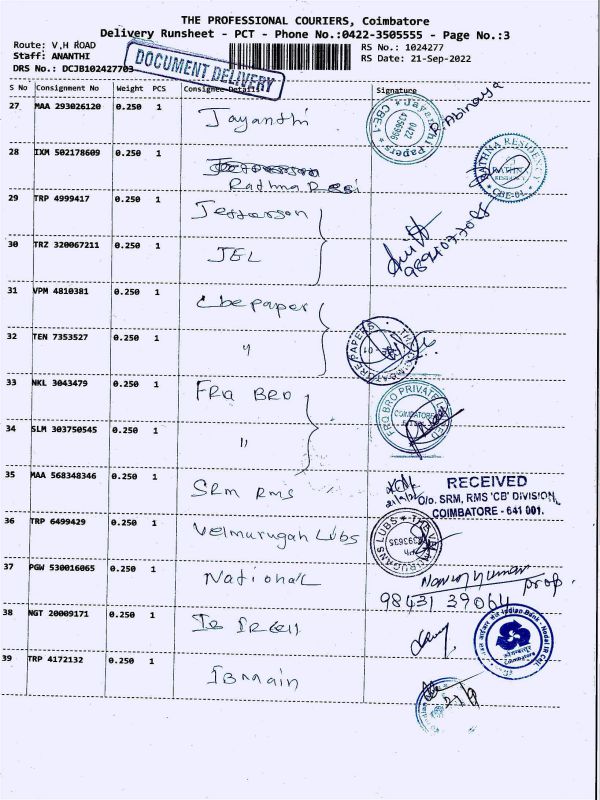 THE PROFESSIONAL COURIERS, Coimbatore
Delivery Runsheet - PCT - Phone No.:0422-3505555 - Page No.:3
Route: V,H ROAD RS No.: 1024277
Staff: ANANTHI RS Date: 21-Sep-2022
DRS No.: DCJB102427703
DOCUMENT DELIVERY
S No Consignment No Weight PCS Consignee Details Signature
27 MAA 293026120 0.250 1 Jayanthi Abinaya
0422
28 IXM 502178609 0.250 1
Rathna Resi
RATHNA RESIDENCY
CBE-01
29 TRP 4999417 0.250 1 Jefferson
30 TRZ 320067211 0.250 1 JEL
31 VPM 4810381 0.250 1 Cbe paper
32 TEN 7353527 0.250 1 "
33 NKL 3043479 0.250 1 FRO BRO
FRO BRO PRIVATE LIMITED
COIMBATORE
34 SLM 303750545 0.250 1 "
35 MAA 568348346 0.250 1 SRM RMS
RECEIVED
O/o. SRM, RMS 'CB' DIVISION,
COIMBATORE - 641 001.
36 TRP 6499429 0.250 1 Velmurugan Lubs
37 PGW 530016065 0.250 1 National
prop.
98431 39064
38 NGT 20009171 0.250 1
Indian Bank
39 TRP 4172132 0.250 1 IB main